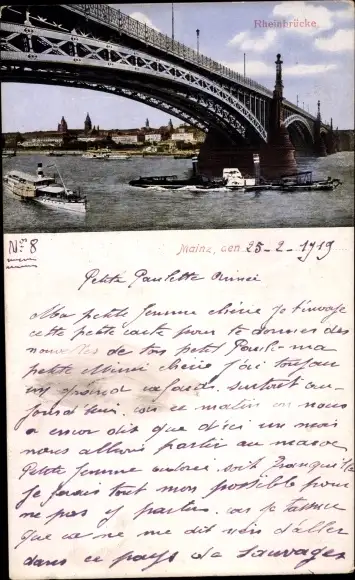 Rheinbrücke.
No 8
Mainz, den 25-2-1919
Petite Paulette
Ma petite femme chérie je t'envoie
cette petite carte pour te donner des
nouvelles de ton petit Paul - ma
petite Mimi chérie j'ai toujours
un grand cafard. surtout au-
jourd'hui. car ce matin on nous
a encor dit que d'ici un mois
nous allions partir au maroc
Petite femme soit tranquille
je ferais tout mon possible pour
ne pas y partir. car je t'assure
que ça ne me dit rien d'aller
dans ce pays de sauvages